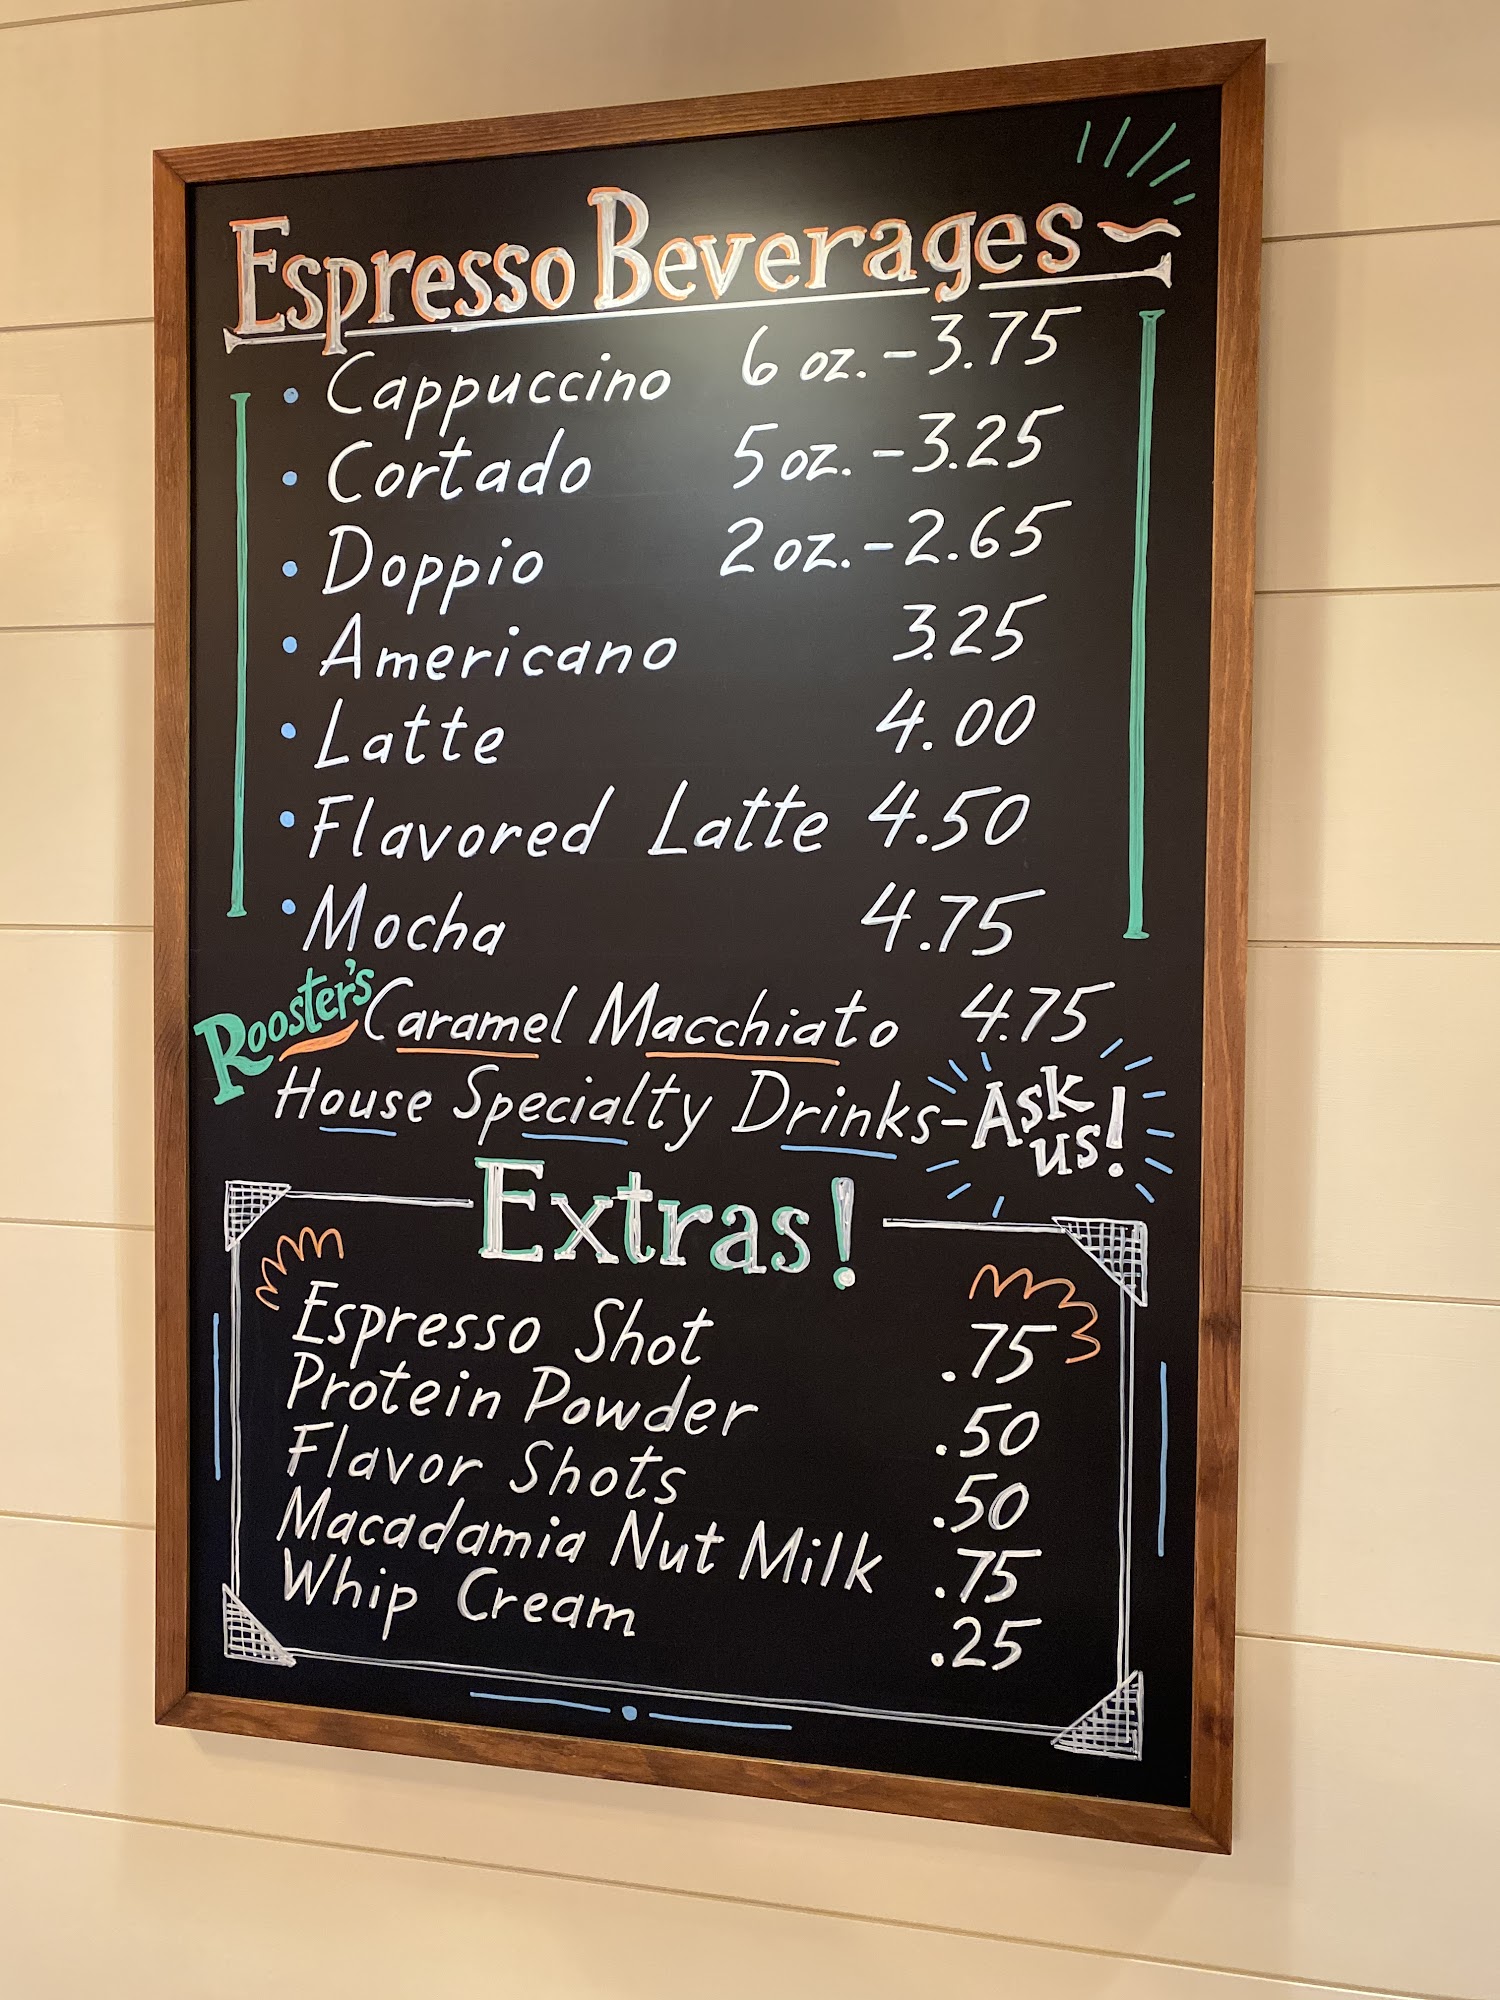 Espresso Beverages~
• Cappuccino 6 oz. - 3.75
• Cortado 5 oz. - 3.25
• Doppio 2 oz. - 2.65
• Americano 3.25
• Latte 4.00
• Flavored Latte 4.50
• Mocha 4.75
Rooster's Caramel Macchiato 4.75
House Specialty Drinks - Ask us!
Extras!
Espresso Shot .75
Protein Powder .50
Flavor Shots .50
Macadamia Nut Milk .75
Whip Cream .25